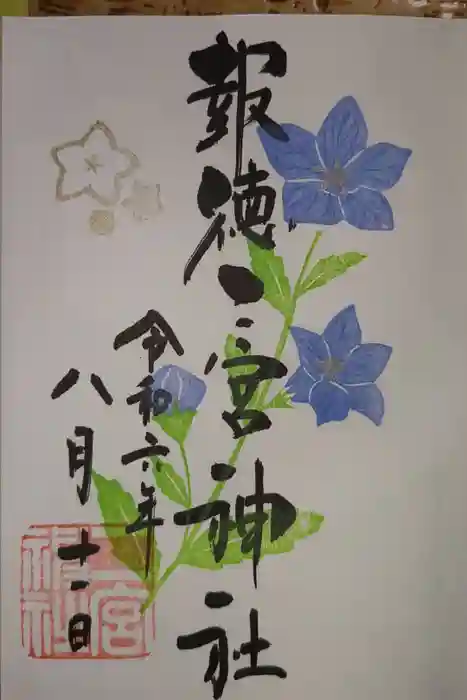 報徳二宮神社
令和六年
八月十一日
二宮
神社